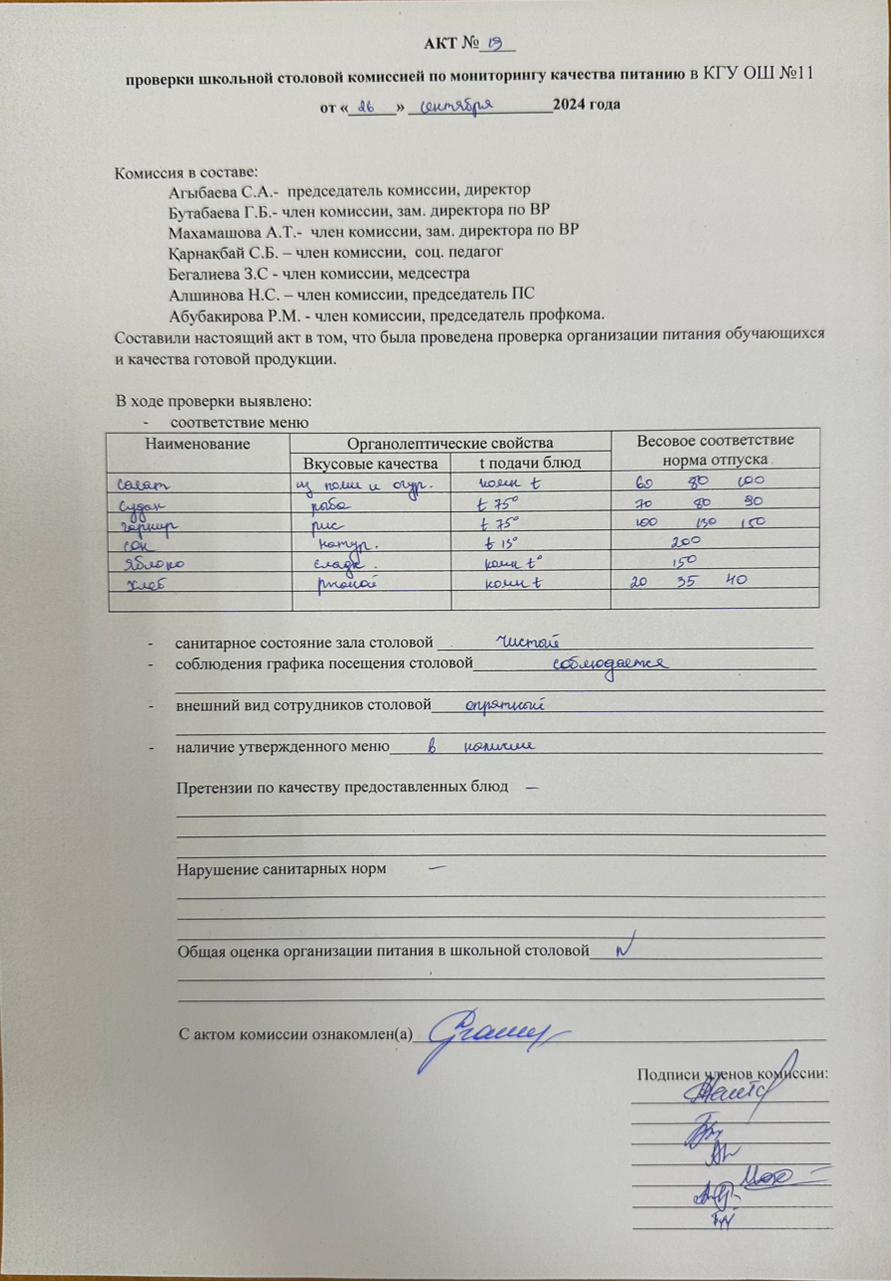 АКТ № 19
проверки школьной столовой комиссией по мониторингу качества питанию в КГУ ОШ №11
от « 26 » сентября 2024 года
Комиссия в составе:
Агыбаева С.А.- председатель комиссии, директор
Бутабаева Г.Б.- член комиссии, зам. директора по ВР
Махамашова А.Т.- член комиссии, зам. директора по ВР
Қарнақбай С.Б. – член комиссии, соц. педагог
Бегалиева З.С - член комиссии, медсестра
Алшинова Н.С. – член комиссии, председатель ПС
Абубакирова Р.М. - член комиссии, председатель профкома.
Составили настоящий акт в том, что была проведена проверка организации питания обучающихся
и качества готовой продукции.
В ходе проверки выявлено:
- соответствие меню
Наименование Органолептические свойства Весовое соответствие
Вкусовые качества t подачи блюд норма отпуска
салат из пом и огур. комн t 60 80 100
судак рыба t 75° 70 80 90
гарнир рис t 75° 100 130 150
сок натур. t 15° 200
яблоко сладк. комн t° 150
хлеб ржаной комн t 20 35 40
- санитарное состояние зала столовой чистой
- соблюдения графика посещения столовой соблюдается
- внешний вид сотрудников столовой опрятный
- наличие утвержденного меню в наличие
Претензии по качеству предоставленных блюд —
Нарушение санитарных норм —
Общая оценка организации питания в школьной столовой
С актом комиссии ознакомлен(а)
Подписи членов комиссии: